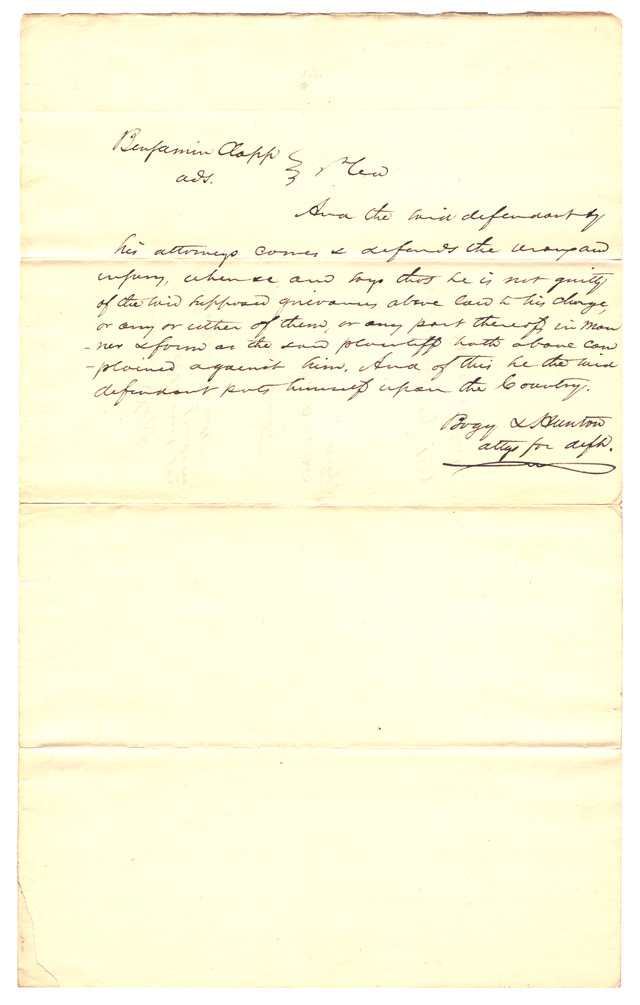 Benjamin Clapp } Plea
ads.
And the said defendant by
his attorneys comes & defends the wrong and
injury, when &c and says that he is not guilty
of the said supposed grievances above laid to his charge,
or any or either of them, or any part thereof, in man
-ner & form as the said plaintiff hath above com
-plained against him. And of this he the said
defendant puts himself upon the Country.
Bogy & Hunton
attys for deft.